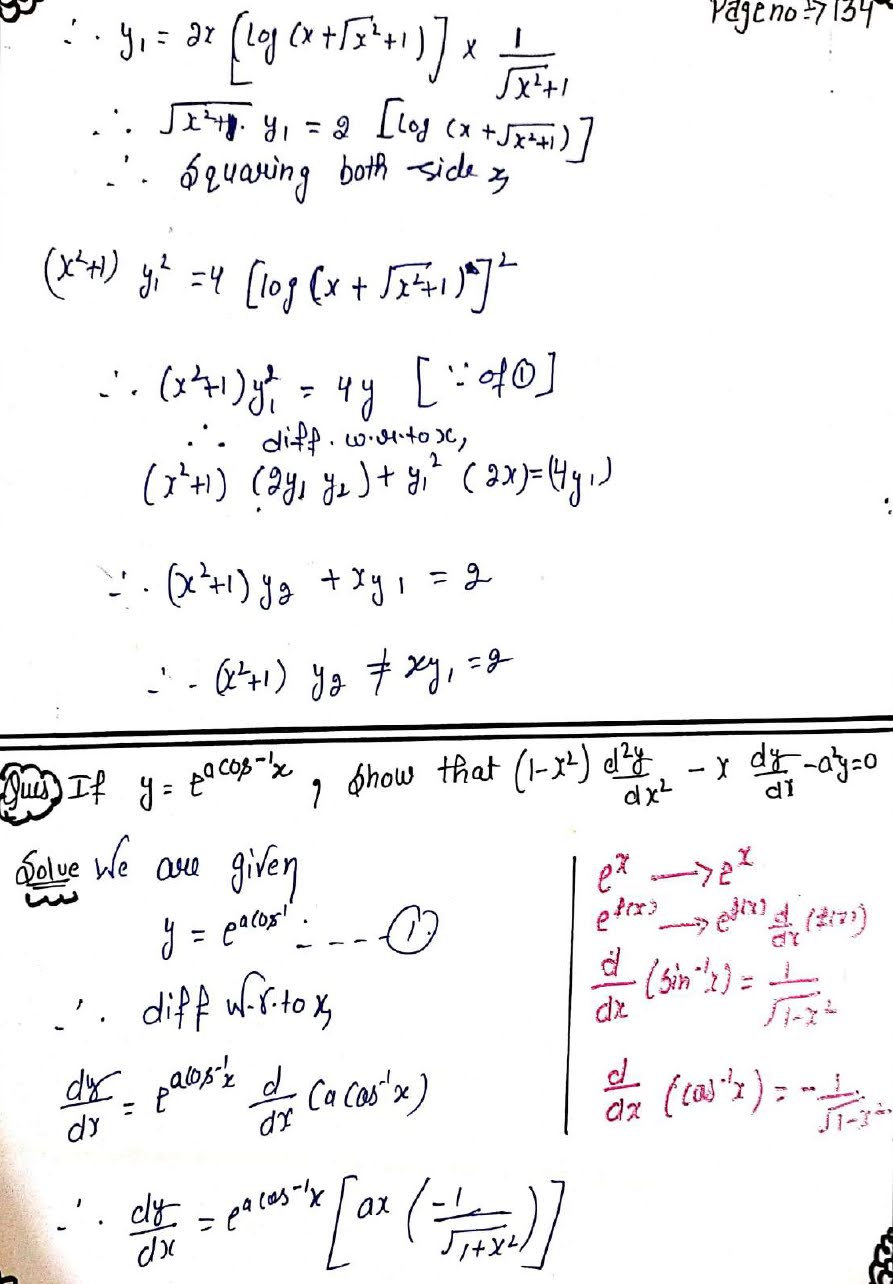 Page no ⇒ 134
∴ y₁ = 2x [log (x+√x²+1)] x 1/√x²+1
∴ √x²+1. y₁ = 2 [log (x+√x²+1)]
∴ Squaring both side,
(x²+1) y₁² = 4 [log (x + √x²+1)]²
∴ (x²+1) y₁² = 4y [∵ of ①]
∴ diff. w.r.to x,
(x²+1) (2y₁ y₂) + y₁² (2x) = (4y₁)
∴ (x²+1) y₂ + xy₁ = 2
∴ (x²+1) y₂ + xy₁ = 2
Ques If y = e^acos⁻¹x, show that (1-x²) d²y/dx² - x dy/dx - a²y=0
Solve We are given
y = e^acos⁻¹ ---- ①
∴ diff w.r.to x,
dy/dx = e^acos⁻¹x d/dx (a cos⁻¹x)
∴ dy/dx = e^a cos⁻¹x [ax (-1/√1+x²)]
e^x → e^x
e^f(x) → e^f(x) d/dx (f(x))
d/dx (sin⁻¹x) = 1/√1-x²
d/dx (cos⁻¹x) = -1/√1-x²